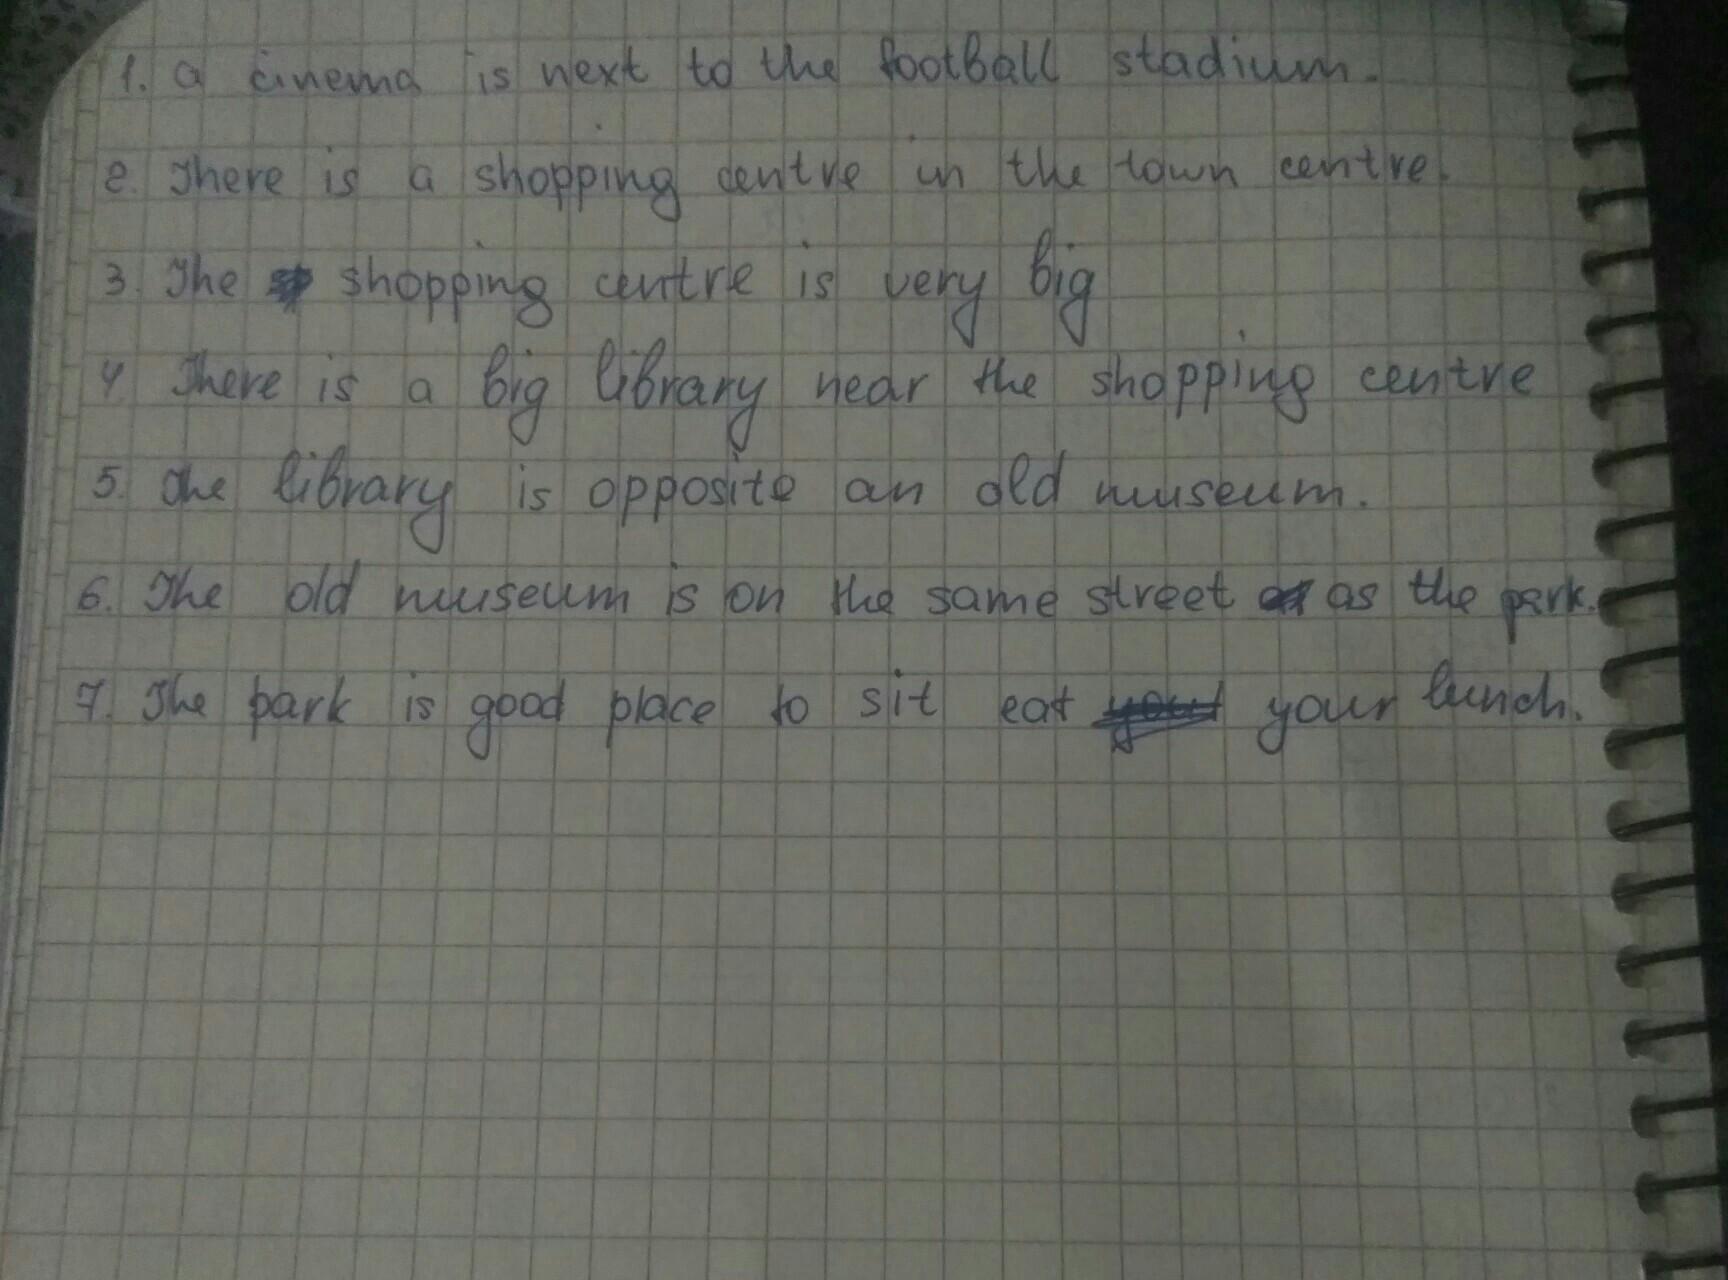 1. a cinema is next to the football stadium.
2. There is a shopping centre in the town centre.
3. The shopping centre is very big
4 There is a big library near the shopping centre
5. The library is opposite an old museum.
6. The old museum is on the same street as the park.
7. The park is good place to sit eat your lunch.